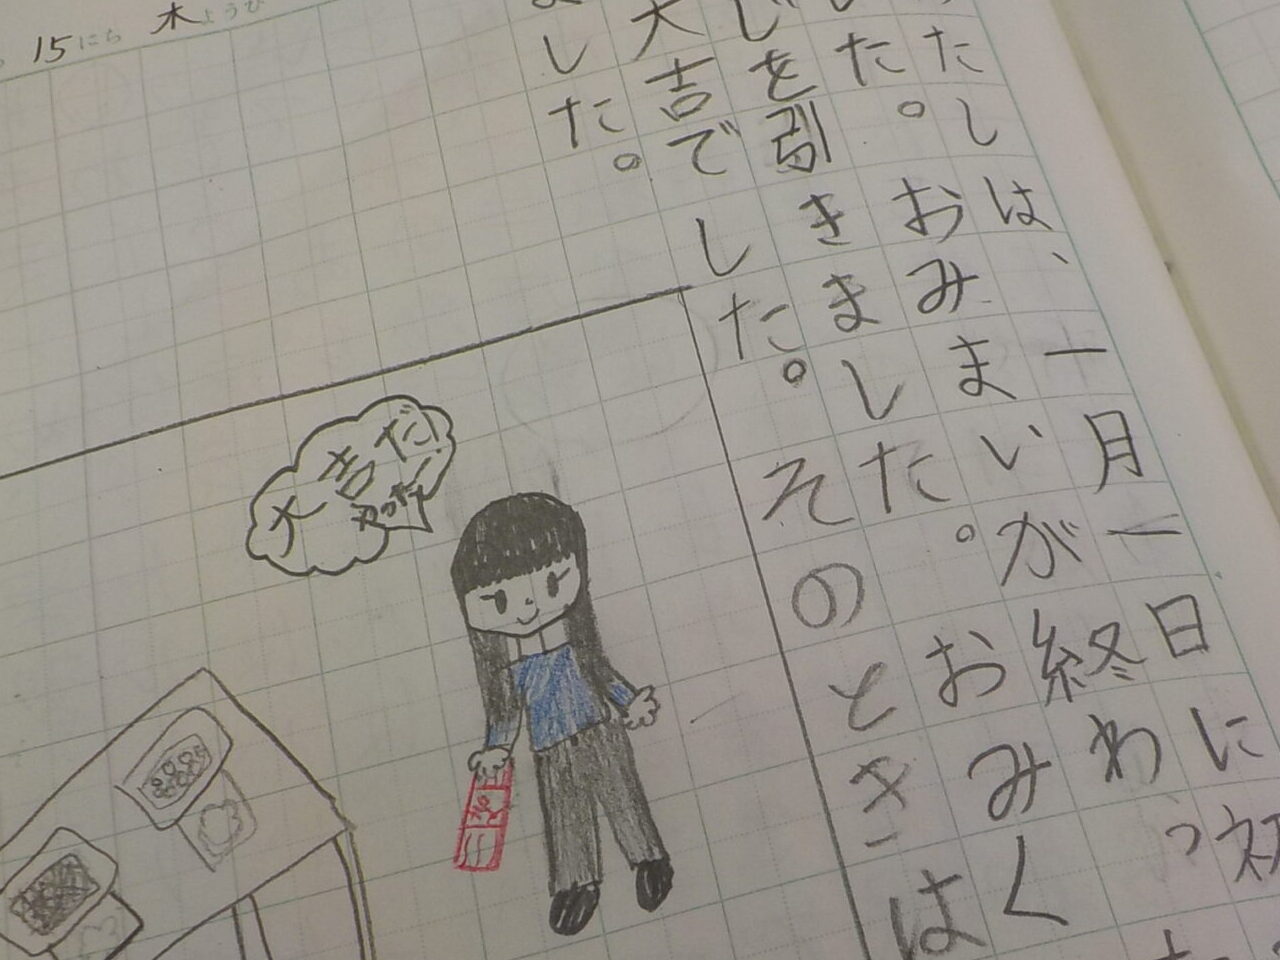 15にち 木ようび
たしは、一月一日に初
た。おみまいが終わっ
じを引きました。おみく
大吉でした。そのときは
ました。
大吉だ